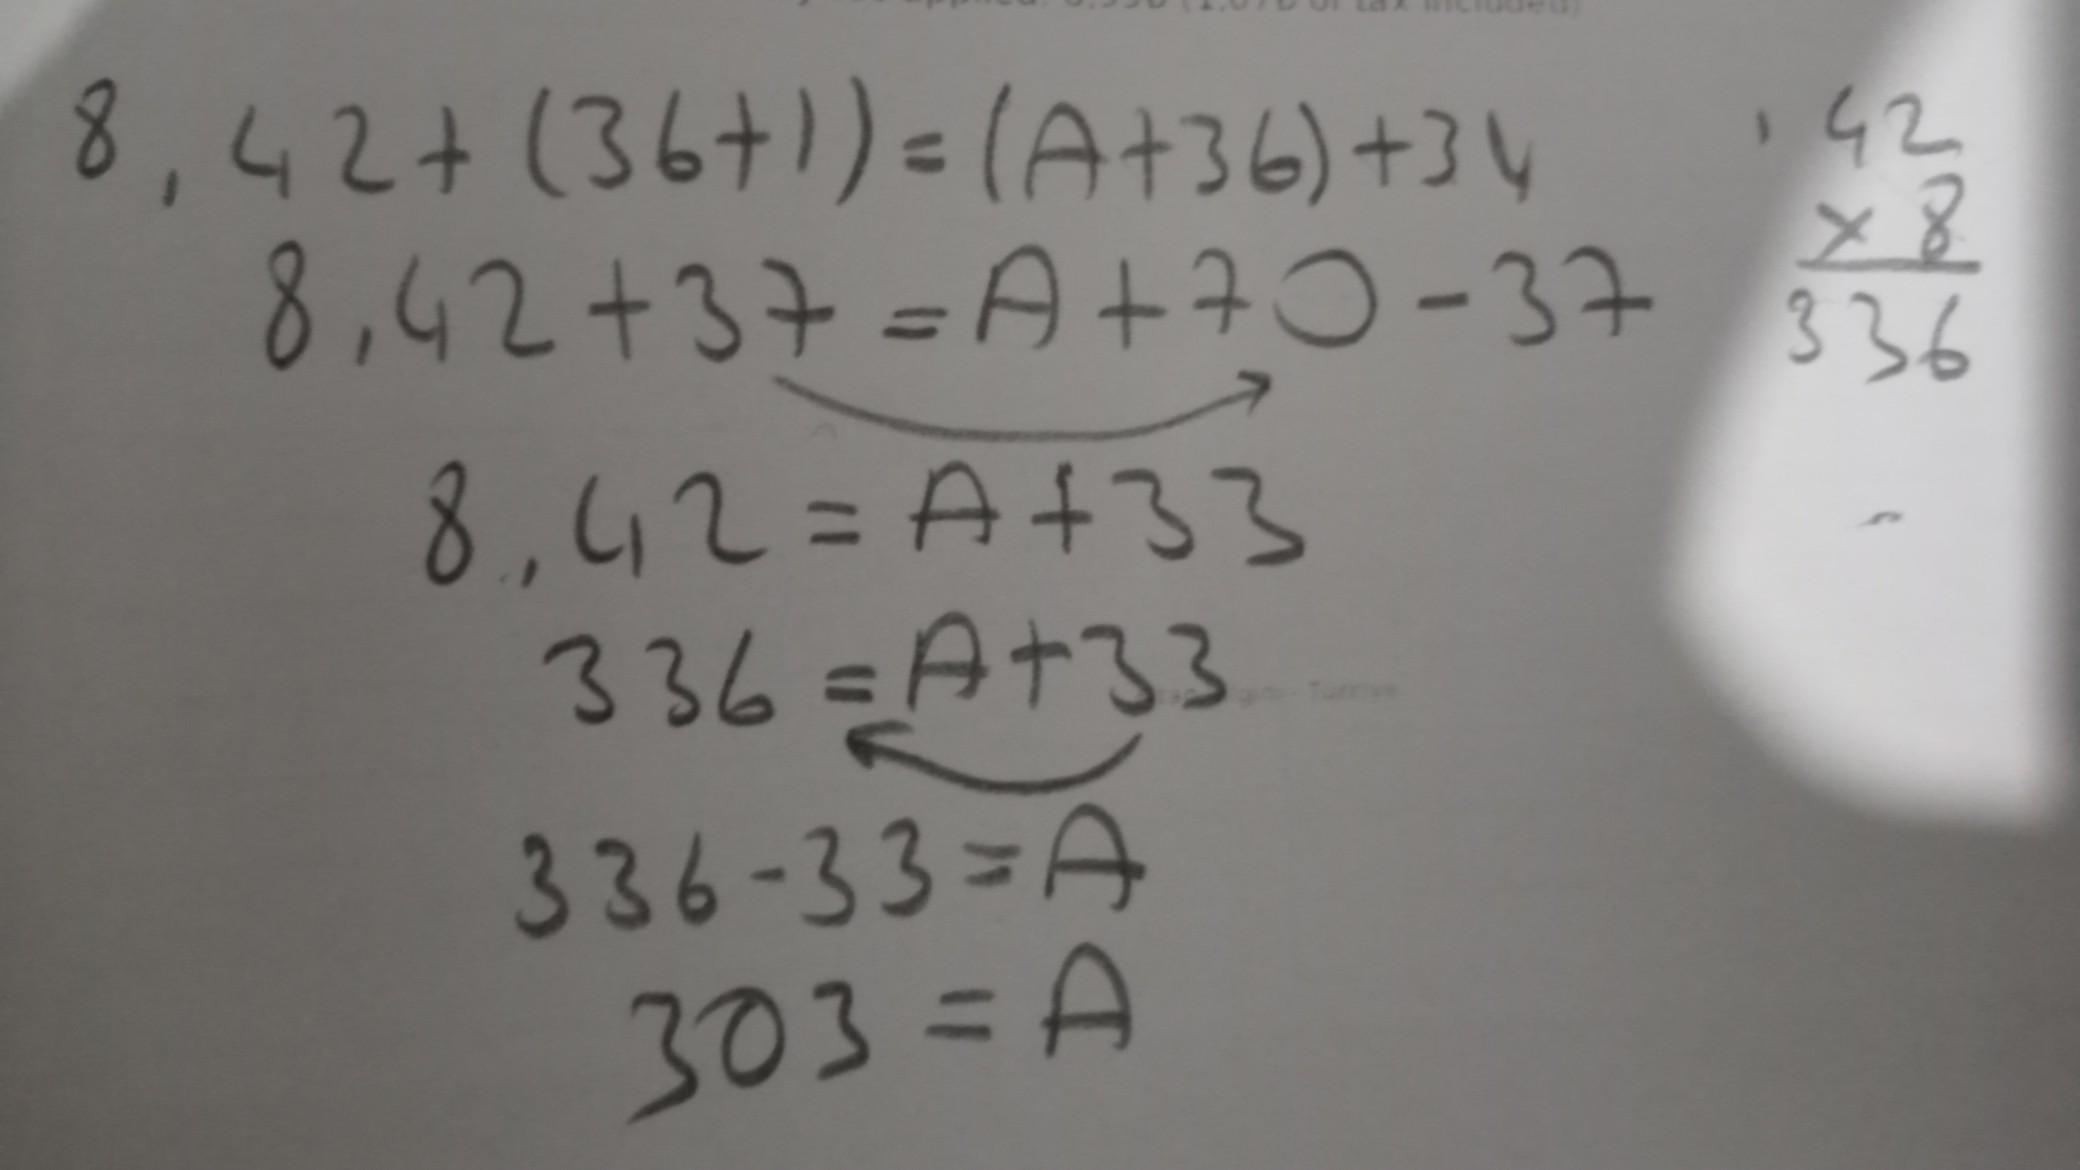 8,42+(36+1)=(A+36)+34
8,42+37=A+70-37
8,42=A+33
336=A+33
336-33=A
303=A
42
x 8
336